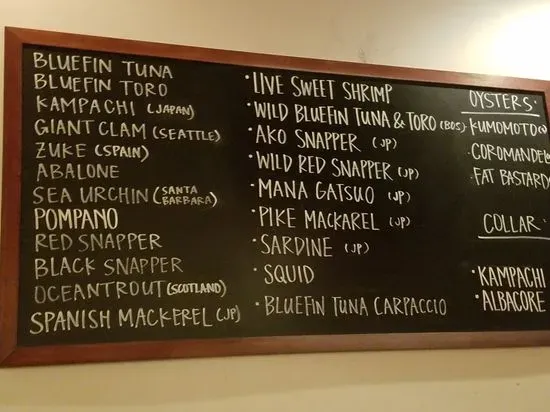 BLUEFIN TUNA
BLUEFIN TORO
KAMPACHI (JAPAN)
GIANT CLAM (SEATTLE)
ZUKE (SPAIN)
ABALONE
SEA URCHIN (SANTA BARBARA)
POMPANO
RED SNAPPER
BLACK SNAPPER
OCEANTROUT (SCOTLAND)
SPANISH MACKEREL (JP)
· LIVE SWEET SHRIMP
· WILD BLUEFIN TUNA & TORO (BOS)
· AKO SNAPPER (JP)
· WILD RED SNAPPER (JP)
· MANA GATSUO (JP)
· PIKE MACKAREL (JP)
· SARDINE (JP)
· SQUID
· BLUEFIN TUNA CARPACCIO
OYSTERS
· KUMOMOTO
· COROMANDEL
· FAT BASTARD
COLLAR
· KAMPACHI
· ALBACORE